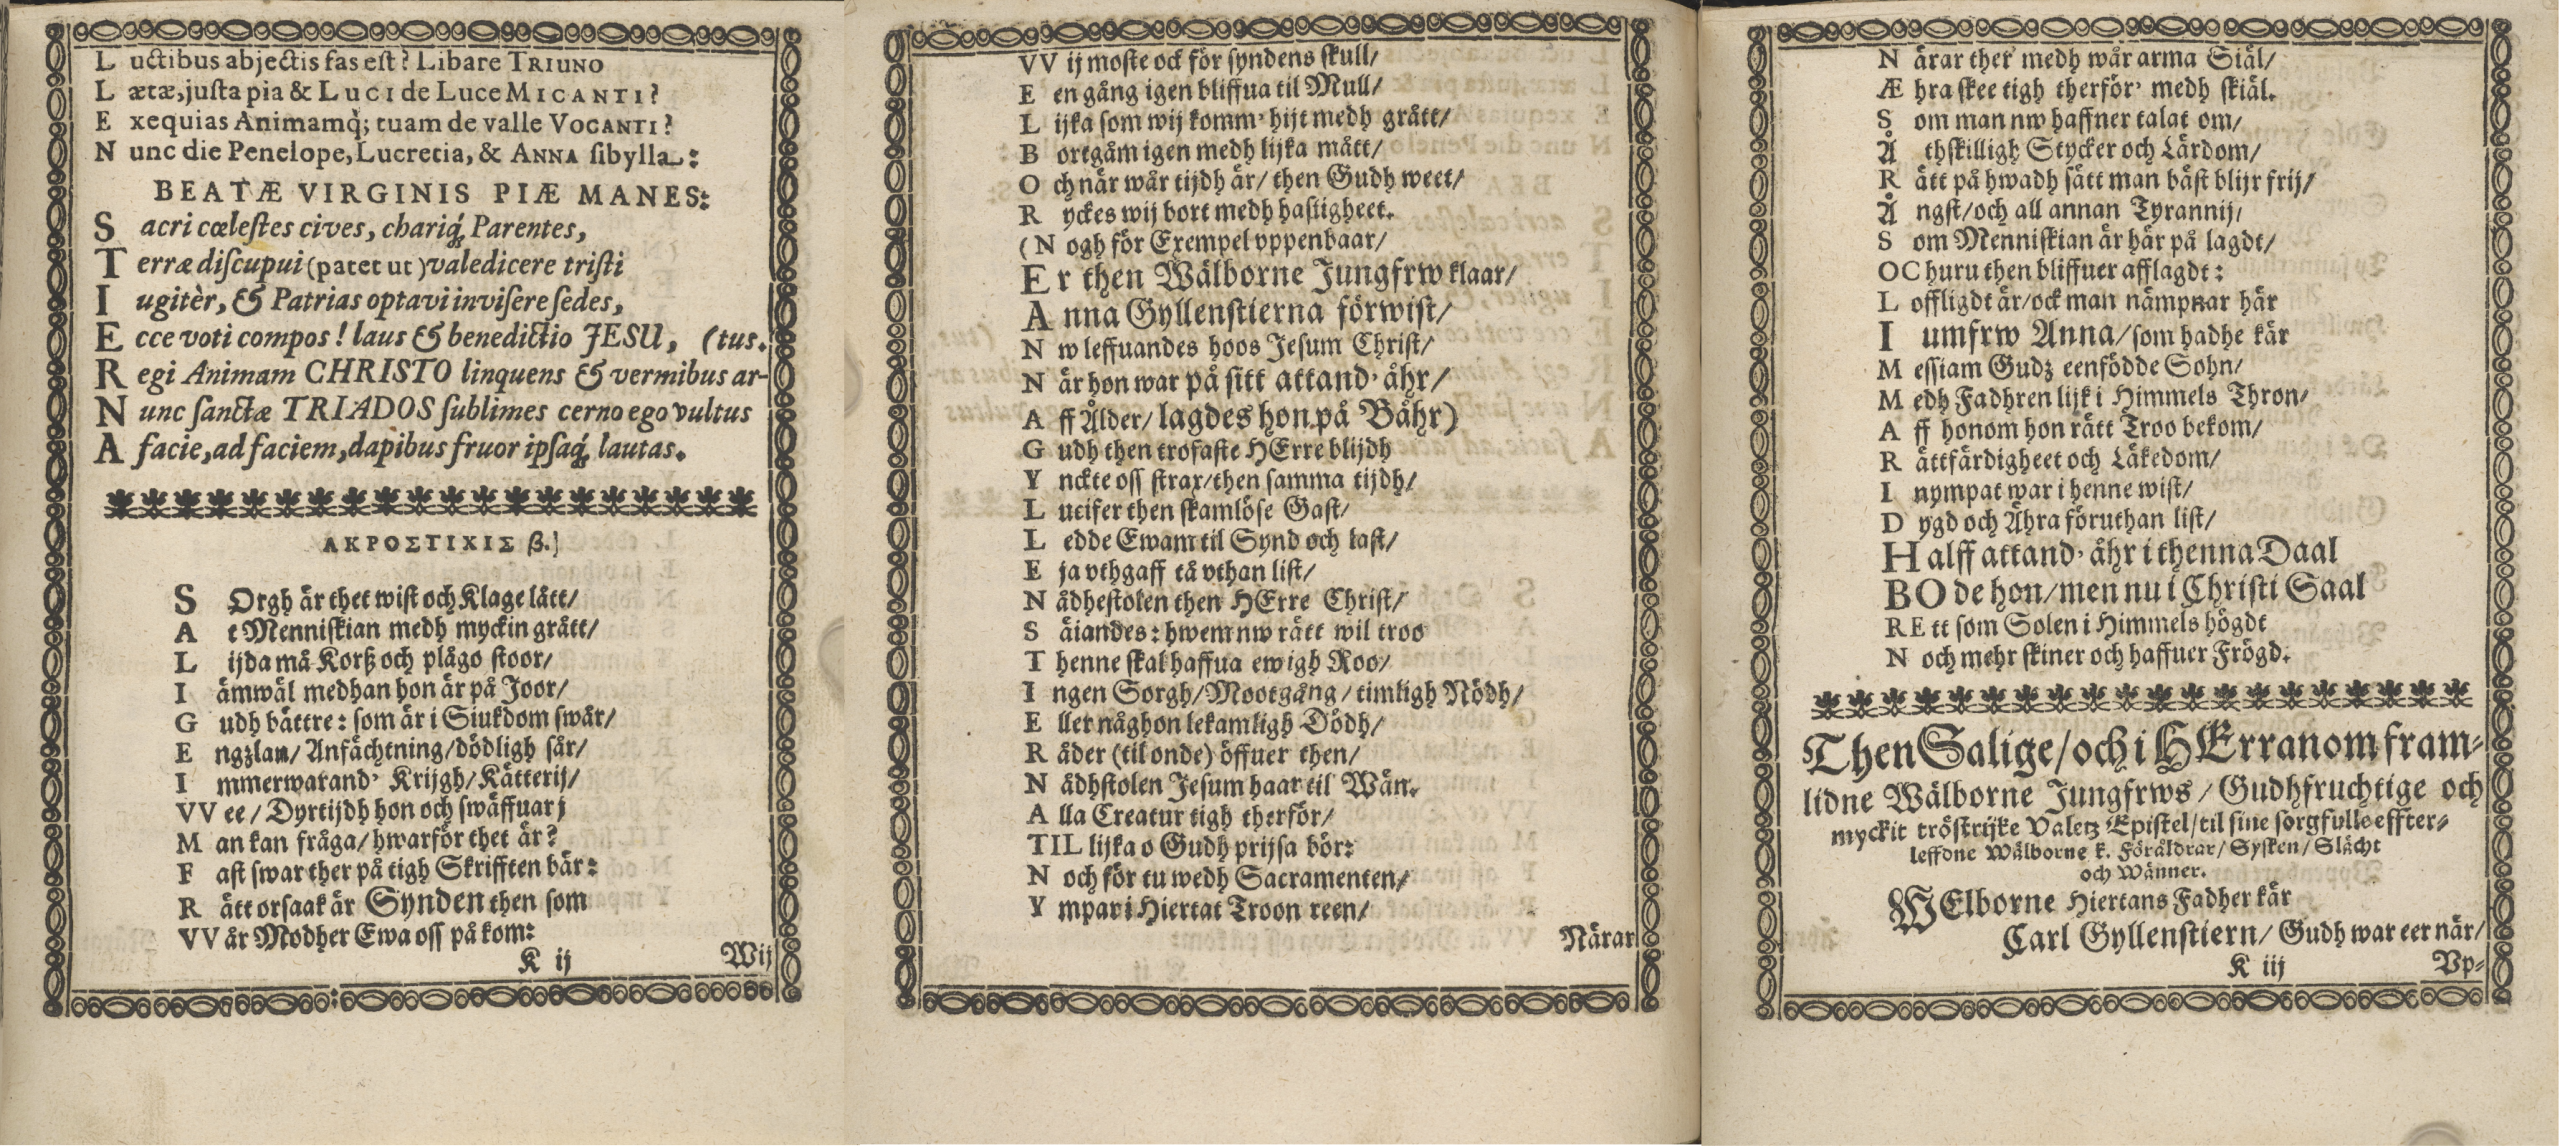 L uctibus abjectis fas est? Libare TRIUNO
L ætæ, justa pia & LUCI de Luce MICANTI?
E xequias Animamq́; tuam de valle VOCANTI?
N unc die Penelope, Lucretia, & ANNA sibylla:
BEATÆ VIRGINIS PIÆ MANES:
S acri cœlestes cives, chariq́, Parentes,
T erræ discupui (patet ut) valedicere tristi
I ugitèr, & Patrias optavi invisere sedes,
E cce voti compos! laus & benedictio JESU, (tus.
R egi Animam CHRISTO linquens & vermibus ar-
N unc sanctæ TRIADOS sublimes cerno ego vultus
A facie, ad faciem, dapibus fruor ipsaq́, lautas.
ΑΚΡΟΣΤΙΧΙΣ β.]
S Orgh är thet wist och Klage lått/
A t Menniskian medh myckin grått/
L ijda må Korß och plågo stoor/
I ämwäl medhan hon är på Joor/
G udh bättre: som är i Siukdom swår/
E ngzlan/ Anfächtning/ dödligh sår/
I mmerwarand' Krijgh/ Kätterij/
VV ee/ Dyrtijdh hon och swäffuar j
M an kan fråga/ hwarför thet är?
F ast swar ther på tigh Skrifften bär:
R ätt orsaak är Synden then som
VV år Modher Ewa oss på kom:
K ij
Wij
VV ij moste ock för syndens skull/
E en gång igen bliffua til Mull/
L ijka som wij komm' hijt medh grått/
B ortgåm igen medh lijka mått/
O ch när wår tijdh är/ then Gudh weet/
R yckes wij bort medh hastigheet.
(N ogh för Exempel vppenbaar/
E r then Wälborne Jungfrw klaar/
A nna Gyllenstierna förwist/
N w leffuandes hoos Jesum Christ/
N är hon war på sitt attand' åhr/
A ff Ålder/ lagdes hon på Båhr)
G udh then trofaste HErre blijdh
Y nckte oss strax/ then samma tijdh/
L ucifer then skamlöse Gast/
L edde Ewam til Synd och last/
E ja vthgaff tå vthan list/
N ådhestolen then HErre Christ/
S äiandes: hwem nw rätt wil troo
T henne skal haffua ewigh Roo/
I ngen Sorgh/ Mootgång/ timligh Nödh/
E ller någhon lekamligh Dödh/
R åder (til onde) öffuer then/
N ådhstolen Jesum haar til Wän.
A lla Creatur tigh therför/
TIL lijka o Gudh prijsa bör:
N och för tu wedh Sacramenten/
Y mpar i Hiertat Troon reen/
Närar
N ärar ther medh wår arma Siäl/
Æ hra skee tigh therför' medh skiäl.
S om man nw haffner talat om/
Å thskilligh Stycker och Lärdom/
R ätt på hwadh sätt man bäst blijr frij/
Å ngst/ och all annan Tyrannij/
S om Menniskian är här på lagdt/
OC huru then bliffuer afflagdt:
L offligdt är/ ock man nämpnar här
I umfrw Anna/ som hadhe kär
M essiam Gudz eenfödde Sohn/
M edh Fadhren lijk i Himmels Thron/
A ff honom hon rätt Troo bekom/
R ättfärdigheet och Läkedom/
I nympat war i henne wist/
D ygd och Ähra föruthan list/
H alff attand' åhr i thenna Daal
BO de hon/ men nu i Christi Saal
RE tt som Solen i Himmels högdt
N och mehr skiner och haffuer Frögd.
Then Salige/ och i HErranom fram-
lidne Wälborne Jungfrws/ Gudhfruchtige och
myckit tröstrijke Valetz Epistel/ til sine sorgfulle effter-
leffdne Wälborne k. Föräldrar/ Sysken/ Slächt
och Wänner.
WElborne Hiertans Fadher kär
Carl Gyllenstiern/ Gudh war eer när/
K iij
Vp-